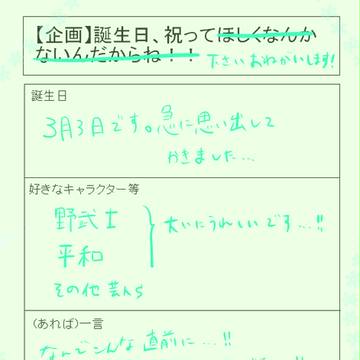 【企画】誕生日、祝ってほしくなんか
ないんだからね！！ 下さいおねがいします!
誕生日
3月3日です。急に思い出して
かきました…
好きなキャラクター等
野武士
平和
その他 芸人ら
大いにうれしいです…!!
(あれば)一言
なんでこんな直前に…!!